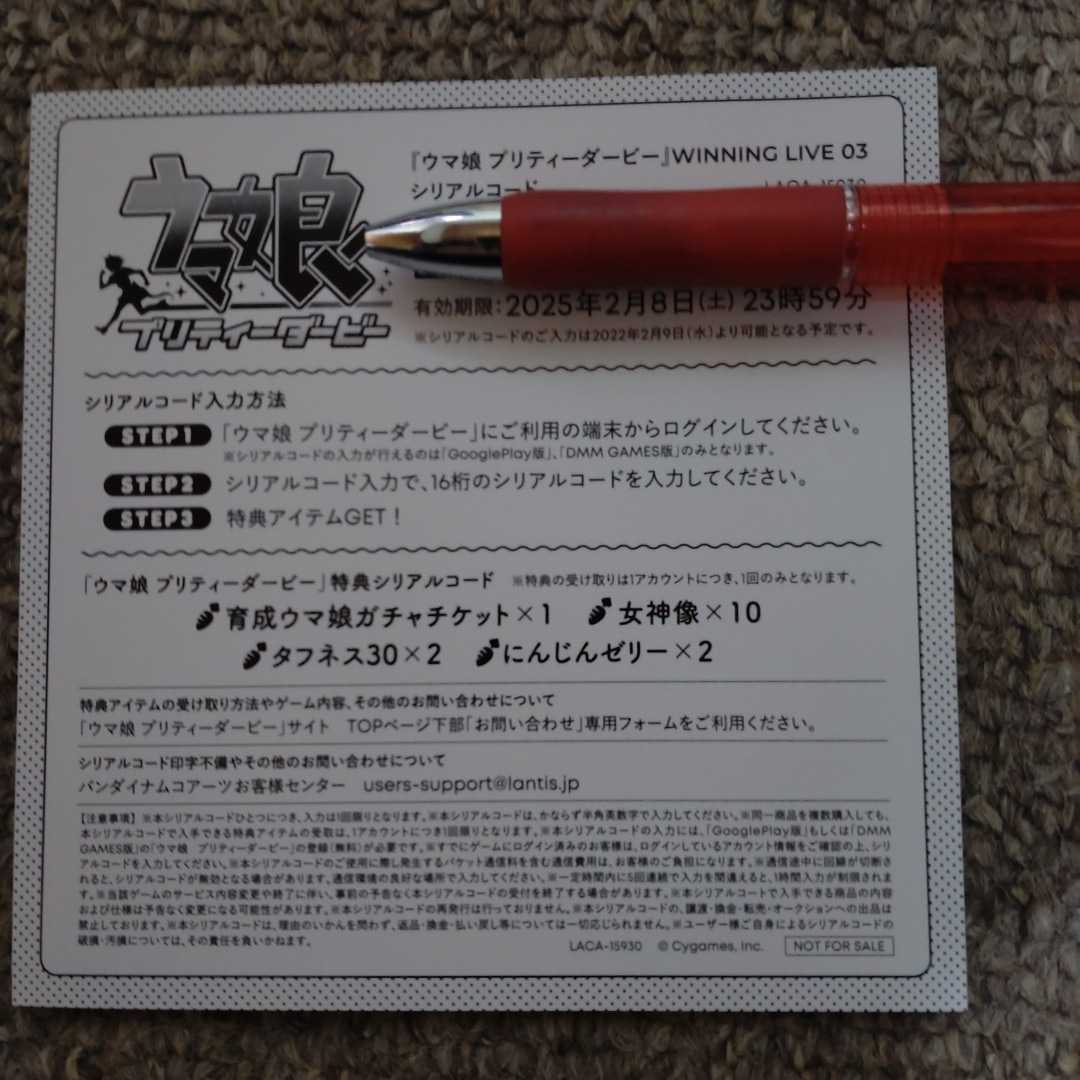 ウマ娘
プリティーダービー
『ウマ娘 プリティーダービー』WINNING LIVE 03
シリアルコード LACA-15930
有効期限:2025年2月8日(土) 23時59分
※シリアルコードのご入力は2022年2月9日(水)より可能となる予定です。
シリアルコード入力方法
STEP1 「ウマ娘 プリティーダービー」にご利用の端末からログインしてください。
※シリアルコードの入力が行えるのは「GooglePlay版」、「DMM GAMES版」のみとなります。
STEP2 シリアルコード入力で、16桁のシリアルコードを入力してください。
STEP3 特典アイテムGET!
「ウマ娘 プリティーダービー」特典シリアルコード ※特典の受け取りは1アカウントにつき、1回のみとなります。
育成ウマ娘ガチャチケット×1 女神像×10
タフネス30×2 にんじんゼリー×2
特典アイテムの受け取り方法やゲーム内容、その他のお問い合わせについて
「ウマ娘 プリティーダービー」サイト TOPページ下部「お問い合わせ」専用フォームをご利用ください。
シリアルコード印字不備やその他のお問い合わせについて
バンダイナムコアーツお客様センター users-support@lantis.jp
【注意事項】※本シリアルコードひとつにつき、入力は1回限りとなります。※本シリアルコードは、かならず半角英数字で入力してください。※同一商品を複数購入しても、
本シリアルコードで入手できる特典アイテムの受取は、1アカウントにつき1回限りとなります。※本シリアルコードの入力には、「GooglePlay版」もしくは「DMM
GAMES版」の「ウマ娘 プリティーダービー」の登録(無料)が必要です。※すでにゲームにログイン済みのお客様は、ログインしているアカウント情報をご確認の上、シリ
アルコードを入力してください。※本シリアルコードのご使用に際し発生するパケット通信料を含む通信費用は、お客様のご負担になります。※通信途中に回線が切断さ
れると、シリアルコードが無効となる場合があります。通信環境の良好な場所で入力してください。※一定時間内に5回連続で入力を間違えると、1時間入力が制限されま
す。※当該ゲームのサービス内容変更や終了に伴い、事前の予告なく本シリアルコードの受付を終了する場合があります。※本シリアルコードで入手できる商品の内容
および仕様は予告なく変更になる可能性があります。※本シリアルコードの再発行は行っておりません。※本シリアルコードの、譲渡・換金・転売・オークションへの出品は
禁止しております。※本シリアルコードは、理由のいかんを問わず、返品・換金・払い戻し等については一切応じられません。※ユーザー様ご自身によるシリアルコードの
破損・汚損については、その責任を負いかねます。
LACA-15930 © Cygames, Inc. NOT FOR SALE